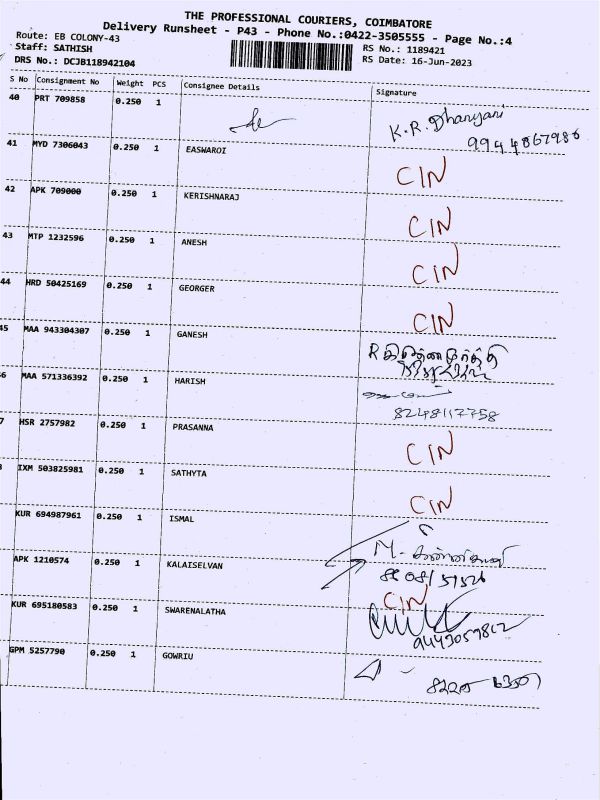 THE PROFESSIONAL COURIERS, COIMBATORE
Delivery Runsheet - P43 - Phone No.:0422-3505555 - Page No.:4
Route: EB COLONY-43
RS No.: 1189421
Staff: SATHISH
RS Date: 16-Jun-2023
DRS No.: DCJB118942104
S No Consignment No Weight PCS Consignee Details Signature
40 PRT 709858 0.250 1 K.R. Dhanyasri
9944867986
41 MYD 7306043 0.250 1 EASWAROI CIN
42 APK 709000 0.250 1 KERISHNARAJ CIN
43 MTP 1232596 0.250 1 ANESH CIN
44 HRD 50425169 0.250 1 GEORGER CIN
45 MAA 943304307 0.250 1 GANESH
6 MAA 571336392 0.250 1 HARISH
8248117758
7 HSR 2757982 0.250 1 PRASANNA CIN
IXM 503825981 0.250 1 SATHYTA CIN
KUR 694987961 0.250 1 ISMAL
M.
APK 1210574 0.250 1 KALAISELVAN CIN
KUR 695180583 0.250 1 SWARENALATHA
9443059812
GPM 5257790 0.250 1 GOWRIU